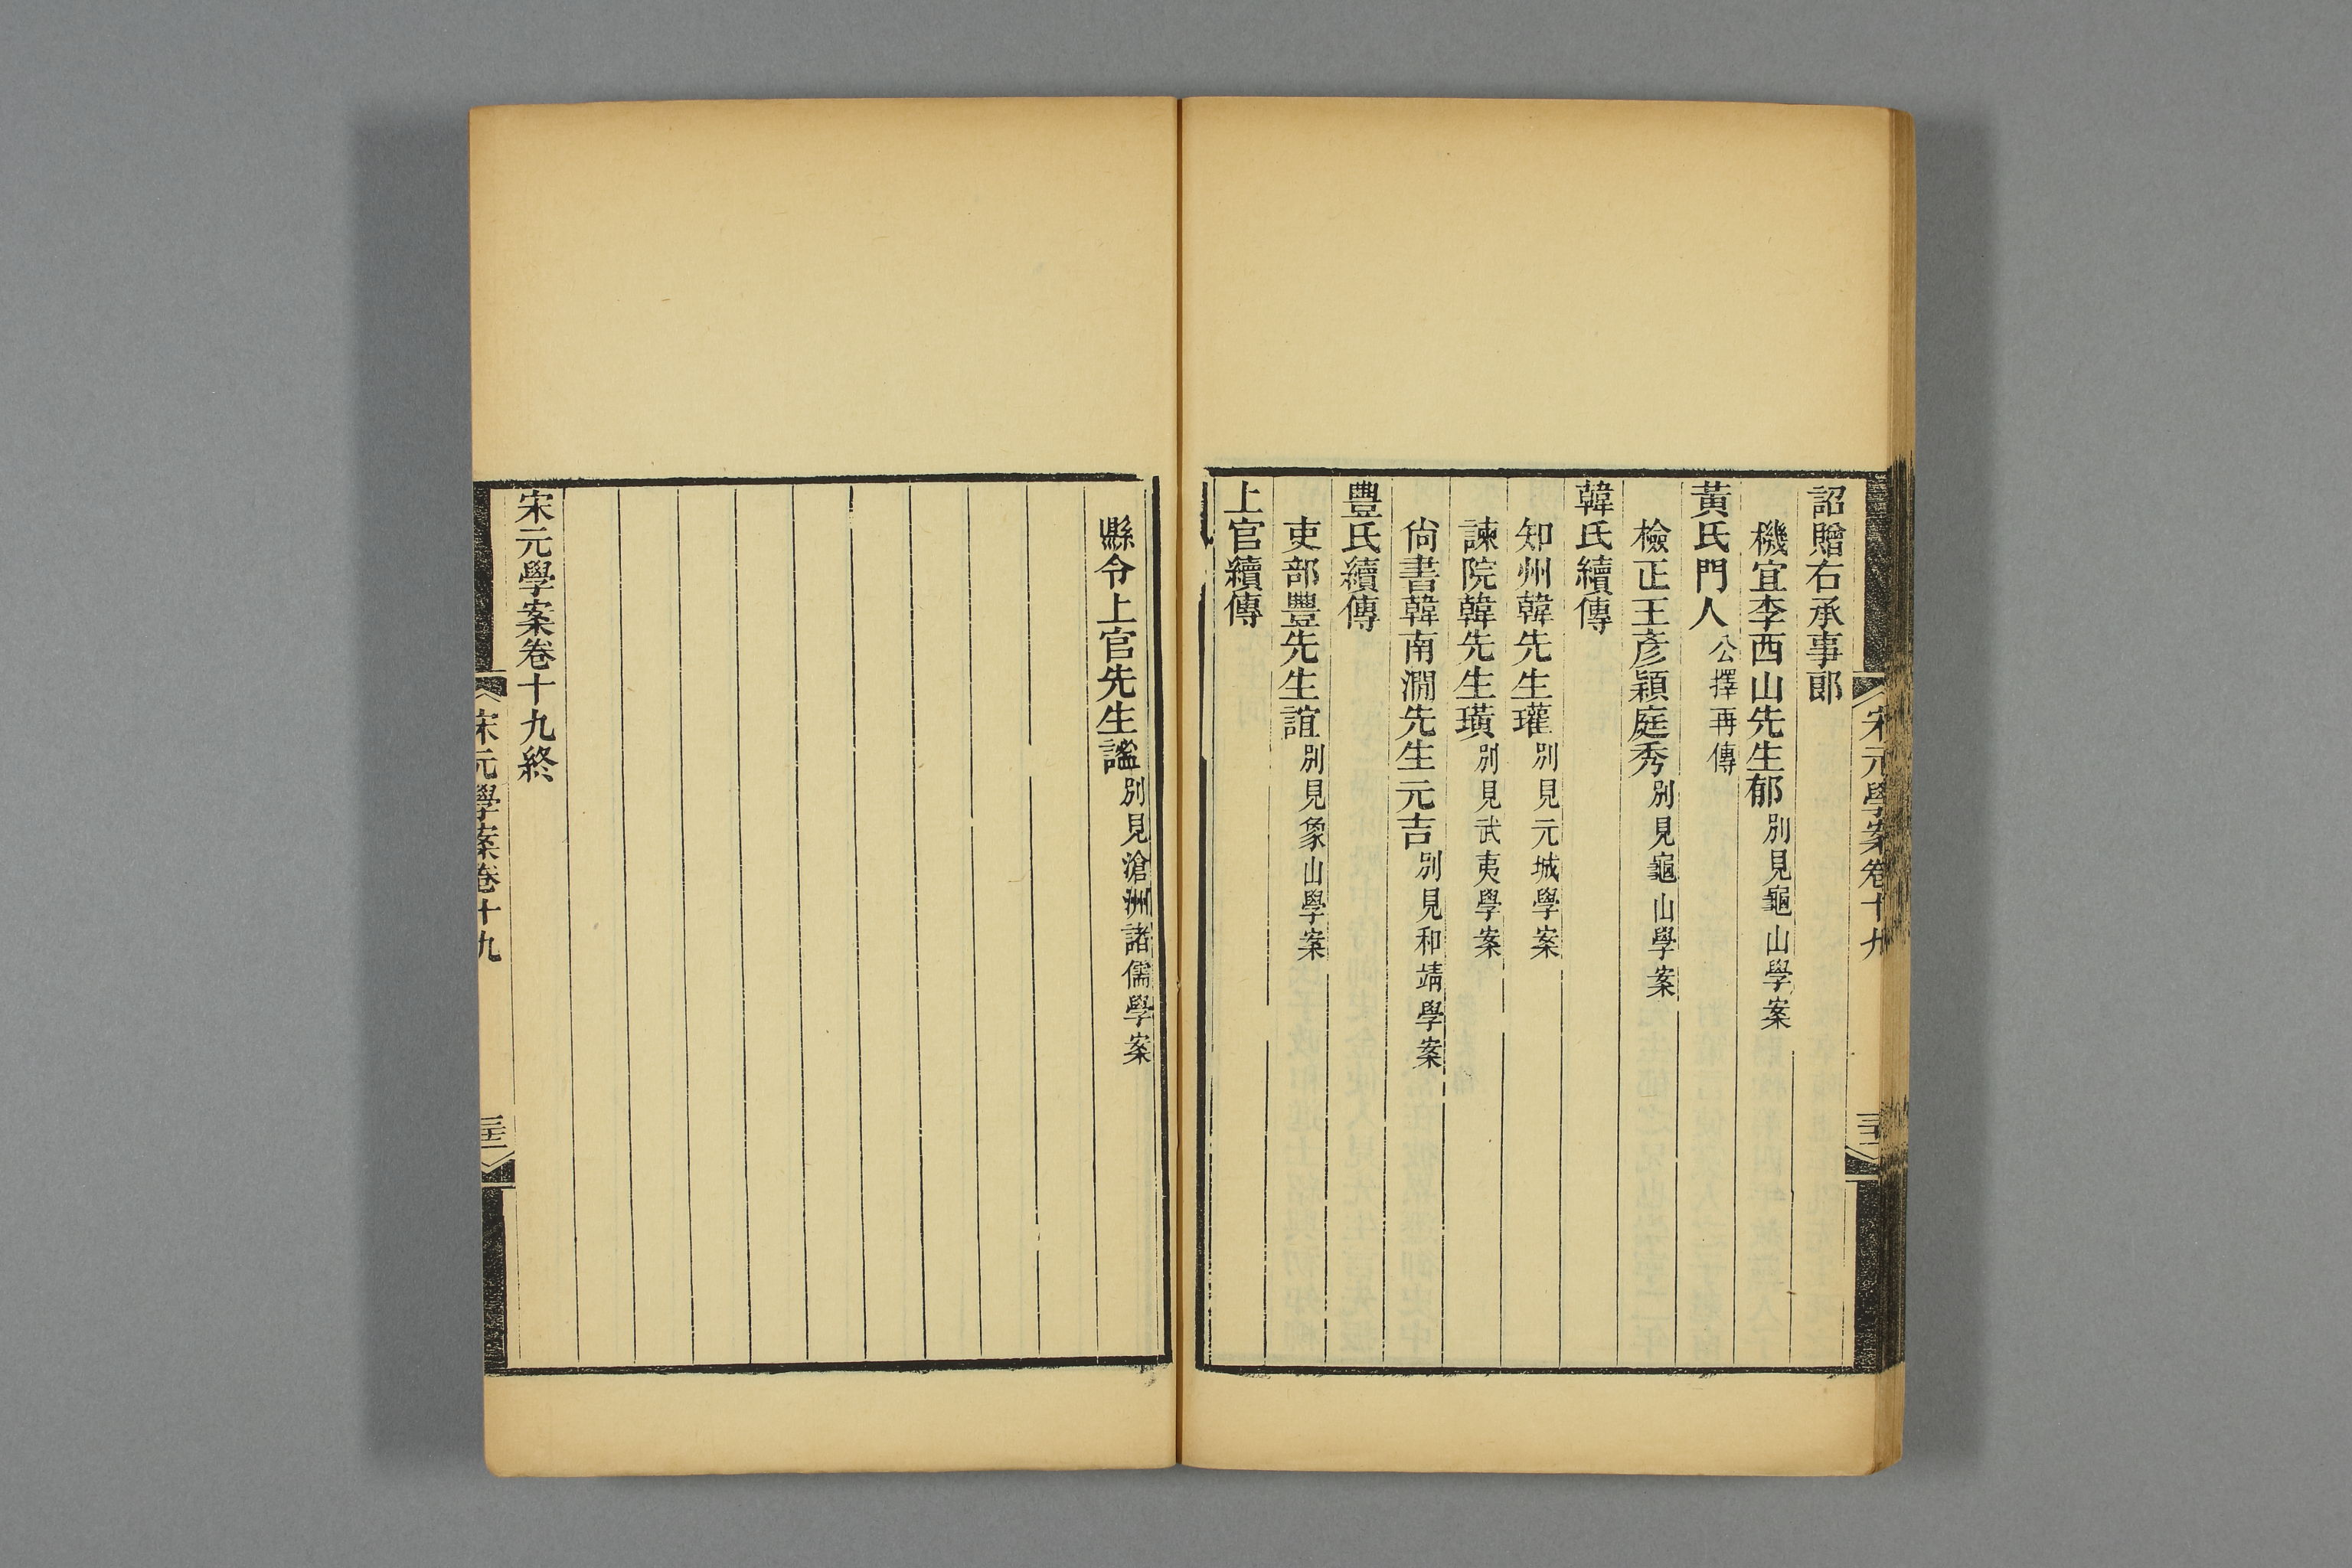 宋元學案卷十九
詔贈右承事郞
機宜李西山先生郁別見龜山學案
黃氏門人公擇再傳
檢正王彥穎庭秀別見龜山學案
韓氏續傳
知州韓先生瓘別見元城學案
諫院韓先生璜別見武夷學案
尙書韓南澗先生元吉別見和靖學案
豐氏續傳
吏部豐先生誼別見象山學案
上官續傳
縣令上官先生謐別見滄洲諸儒學案
宋元學案卷十九終
宋元學案卷十九